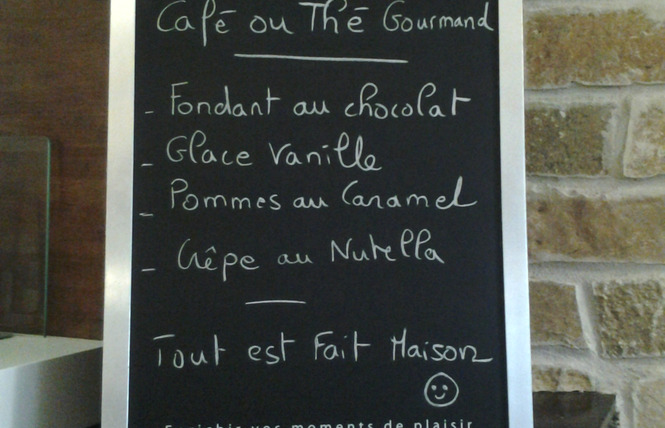 Café ou Thé Gourmand
- Fondant au chocolat
- Glace Vanille
- Pommes au Caramel
- Crêpe au Nutella
Tout est Fait Maison
Enrichir vos moments de plaisir